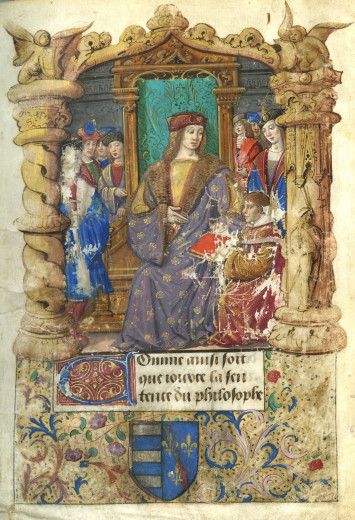 Comme ainsi soit
que iouxte la sen
tence du philosophe